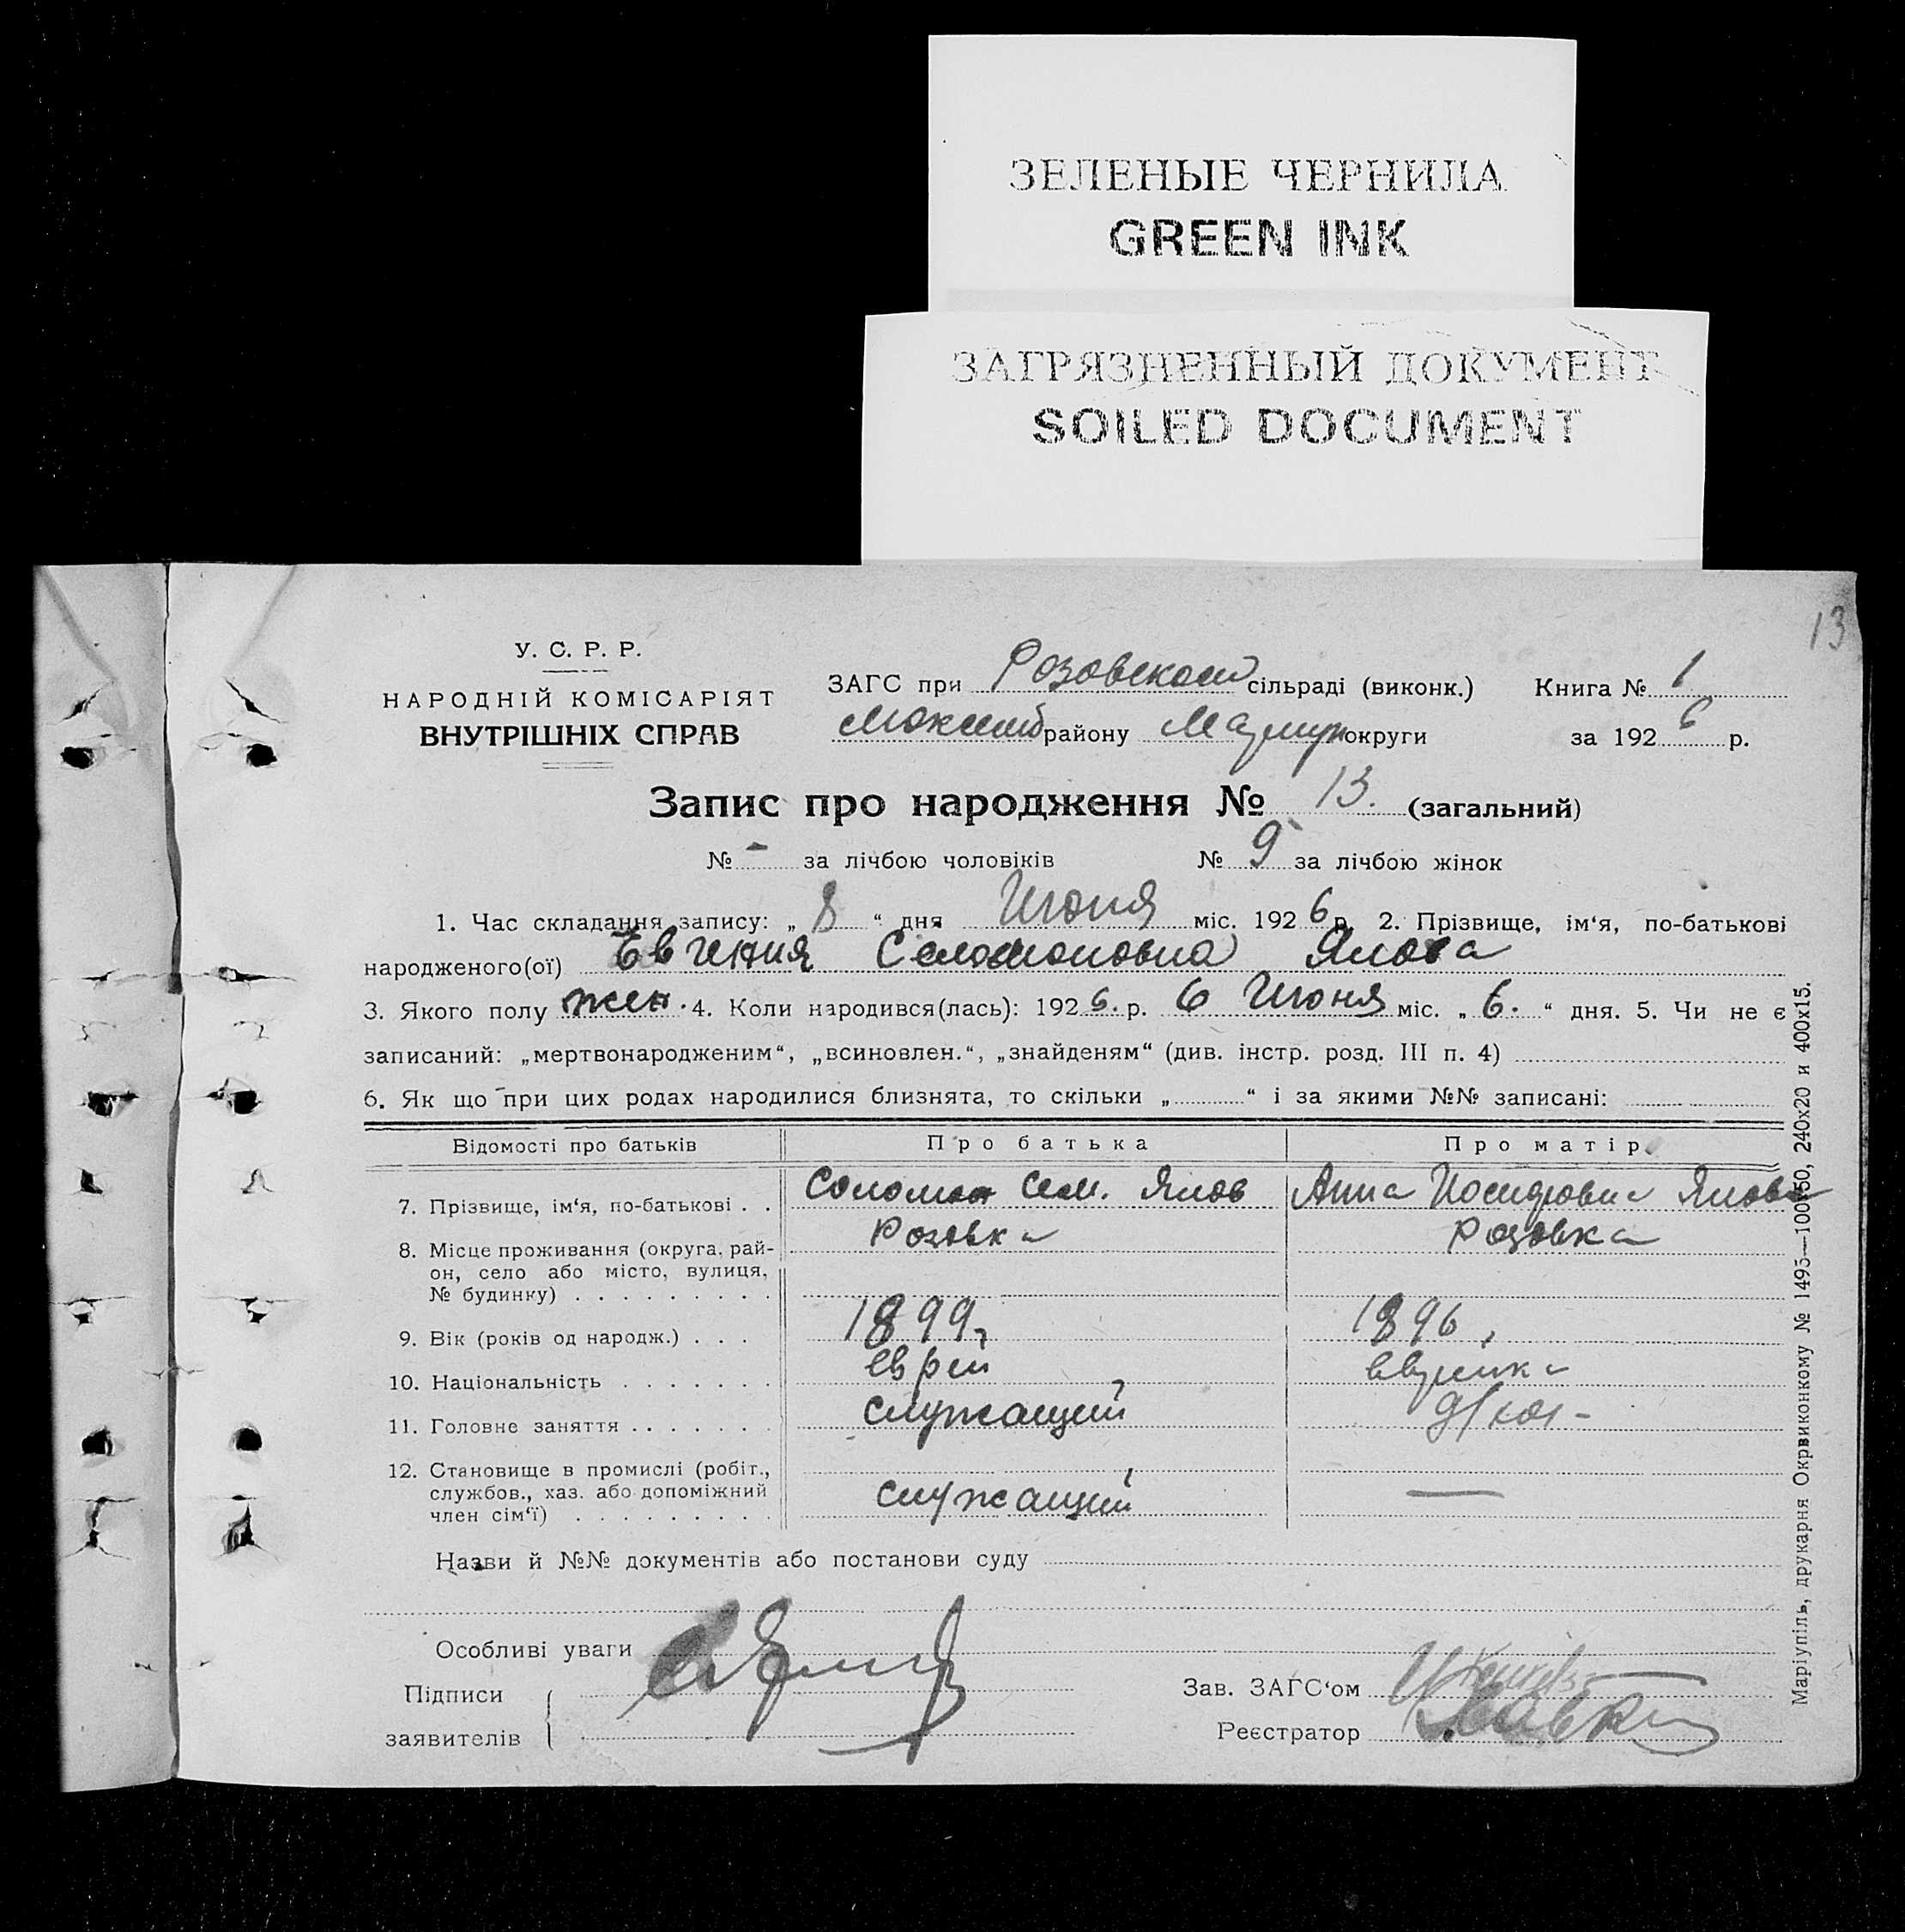 ЗЕЛЕНЫЕ ЧЕРНИЛА
GREEN INK
ЗАГРЯЗНЕННЫЙ ДОКУМЕНТ
SOILED DOCUMENT
13
У. С. Р. Р.
НАРОДНІЙ КОМІСАРІЯТ
ВНУТРІШНІХ СПРАВ
ЗАГС при Розовском сільраді (виконк.) Книга № 1
району округи за 192 6 р.
Запис про народження № 13. (загальний)
№ - за лічбою чоловіків № 9 за лічбою жінок
1. Час складання запису: „ 8 “ дня Июня міс. 192 6 р. 2. Прізвище, ім‘я, по-батькові
народженого(ої) Евгения Соломоновна Ялова
3. Якого полу жен. 4. Коли народився(лась): 192 6. р. 6 Июня міс. „ 6. “ дня. 5. Чи не є
записаний: „мертвонародженим“, „всиновлен.“, „знайденям“ (див. інстр. розд. III п. 4)
6. Як що при цих родах народилися близнята, то скільки „ “ і за якими №№ записані:
Відомості про батьків Про батька Про матір
7. Прізвище, ім‘я, по-батькові . . Соломон Сем. Ялов Анна Иосифовна Ялова
8. Місце проживання (округа, рай- Розовка Розовка
он, село або місто, вулиця,
№ будинку) . . . . . . . . .
9. Вік (років од народж.) . . . 1899, 1896,
10. Національність . . . . . . . еврей еврейка
11. Головне заняття . . . . . . . служащий д/хоз-
12. Становище в промислі (робіт.,
службов., хаз. або допоміжний служащий —
член сім‘ї) . . . . . . . . .
Назви й №№ документів або постанови суду
Особливі уваги
Підписи
заявителів
Зав. ЗАГС‘ом
Реєстратор
Маріупіль, друкарня Окрвиконкому № 1495—100×50, 240х20 и 400х15.